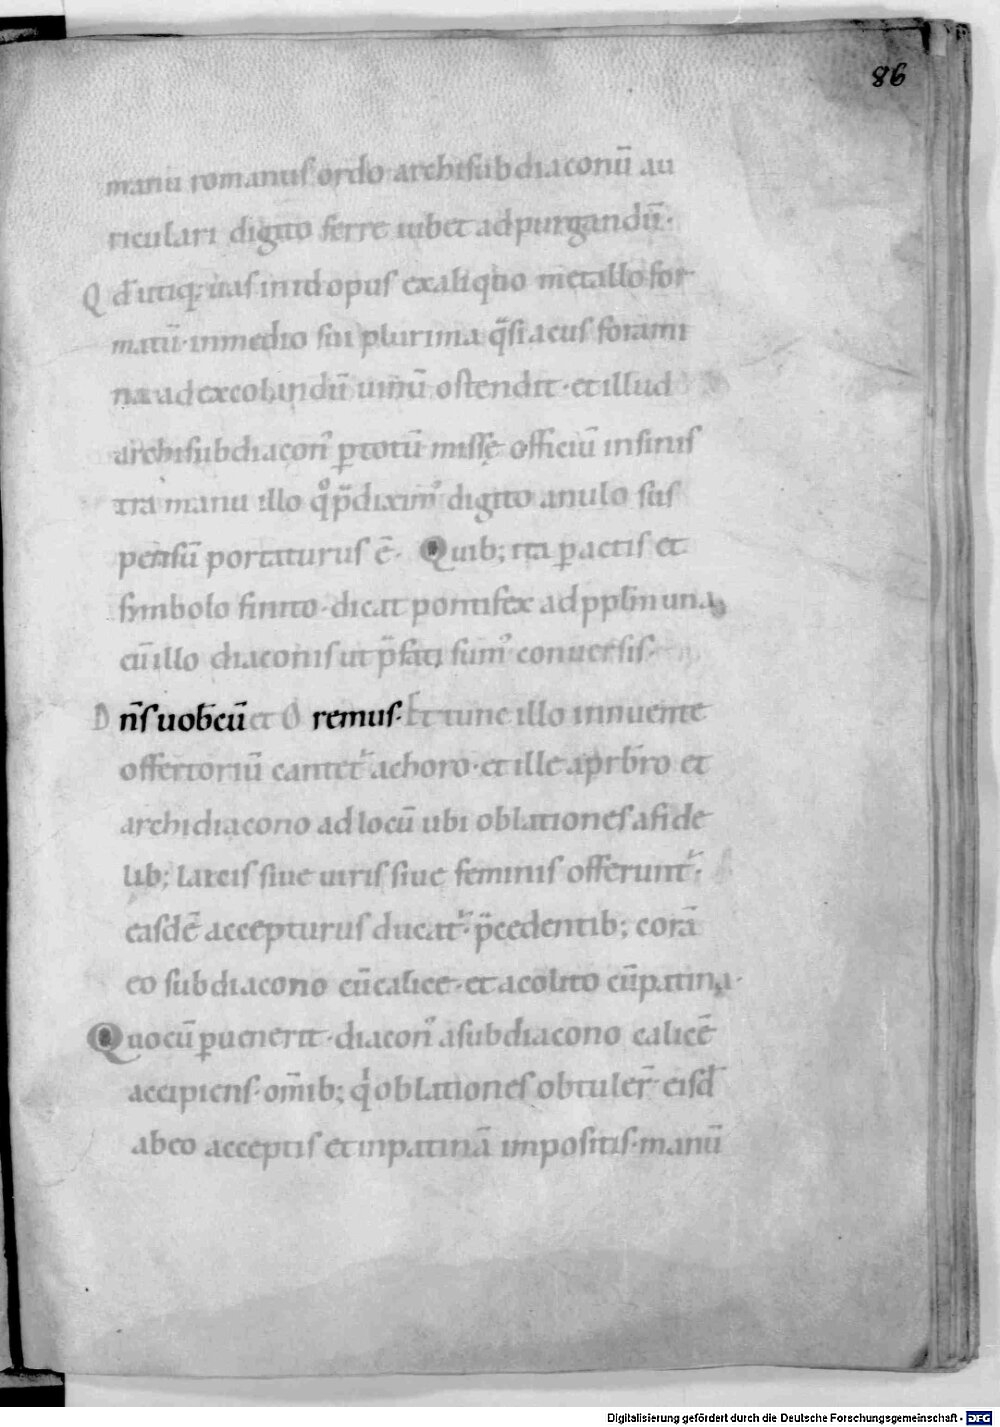 86
manu romanus ordo archisubdiaconū au
riculari digito ferre iubet ad purgandū·
Qd̄ utiq; uas in id opus ex aliquo metallo for
matū· in medio sui plurima q̄si acus forami
na ad excolandū uinū ostendit· et illud
archisubdiacon᾽ ꝑ totū missę officiū in sinis
tra manu illo qͦ p̄diximꝰ digito anulo sus
pensū portaturus ē· Quib; ita ꝑactis et
symbolo finito· dicat pontifex ad ppl̄m una
cū illo diaconis ut p̄fati sumꝰ conuersis·
Dn̄s uob̄cū et Oremus· Et tunc illo innuente
offertoriū cantet᷑ a choro· et ille a prb̄ro et
archidiacono ad locū ubi oblationes a fide
lib; laicis siue uiris siue feminis offerunt᷑·
easdē accepturus ducat᷑· p̄cedentib; corā
eo subdiacono cū calice· et acolito cū patina·
Quo cū ꝑuenerit· diacon᾽ a subdiacono calicē
accipiens· om̄ib; qͥ oblationes obtuler̄ eisd̄
ab eo acceptis et in patinā impositis· manū
Digitalisierung gefördert durch die Deutsche Forschungsgemeinschaft - DFG